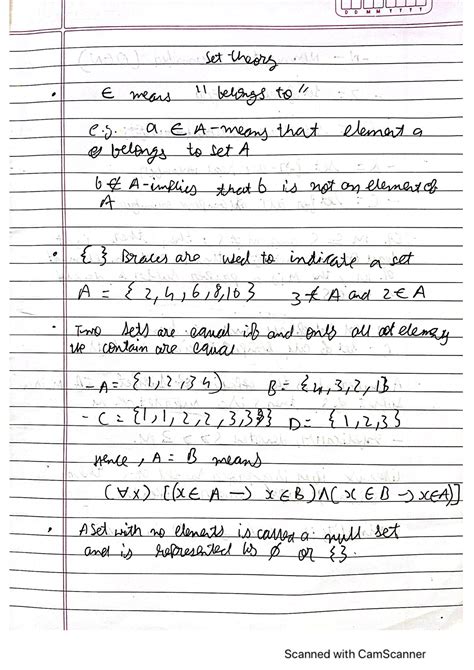 D D M M Y Y Y Y
Set theory
• ∈ means "belongs to"
e.g. a ∈ A - means that element a
belongs to set A
b ∉ A - implies that b is not an element of
A
• { } Braces are used to indicate a set
A = {2,4,6,8,10} 3 ∉ A and 2 ∈ A
• Two sets are equal if and only all
contain are equal
- A = {1,2,3 4) B = {4,3,2,1}
- C = {1,1,2,2,3,3} D = {1,2,3}
Hence, A = B means
(∀x) [(x ∈ A → x ∈ B) ∧ (x ∈ B → x ∈ A)]
• A set with no elements is called a null set
and is represented by ∅ or {}.
Scanned with CamScanner